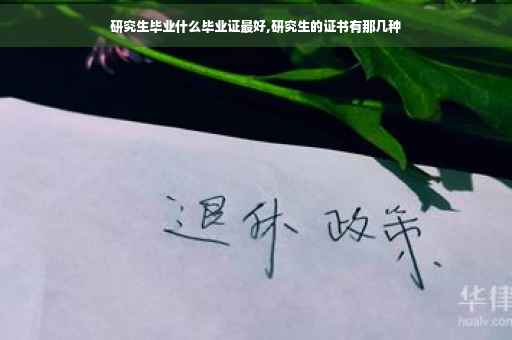 研究生毕业什么毕业证最好,研究生的证书有那几种
退休 政策
华律
hualv.com